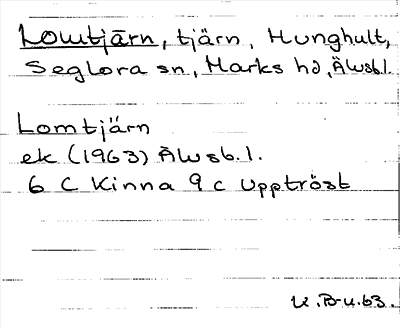 Lomtjärn, tjärn, Hunghult,
Seglora sn., Marks hd, Älvsbl.
Lomtjärn
ek (1963) Älvsb.l.
6 C Kinna 9 c Upptröst
U.B-u.63.